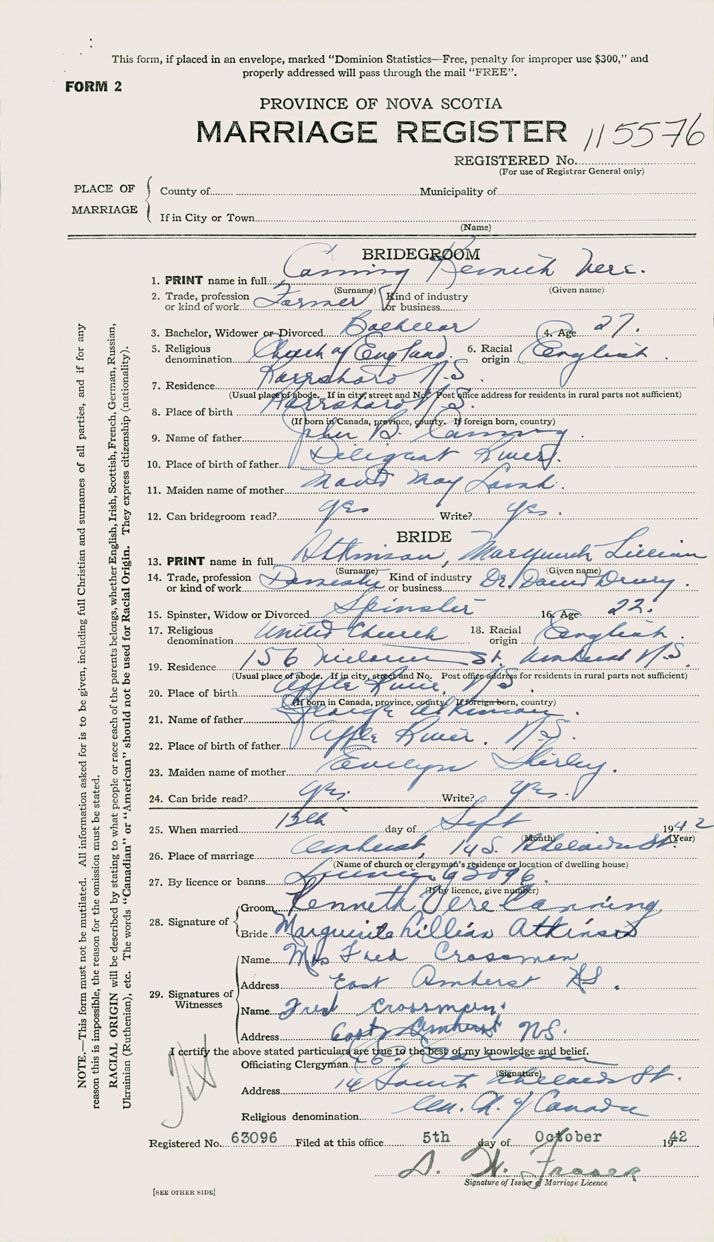 This form, if placed in an envelope, marked "Dominion Statistics—Free, penalty for improper use $300," and
properly addressed will pass through the mail "FREE".
FORM 2
PROVINCE OF NOVA SCOTIA
MARRIAGE REGISTER 115576
REGISTERED No.
(For use of Registrar General only)
PLACE OF MARRIAGE
County of Municipality of
If in City or Town
(Name)
BRIDEGROOM
1. PRINT name in full Canning Vere.
(Surname) (Given name)
2. Trade, profession or kind of work Farmer Kind of industry or business
3. Bachelor, Widower or Divorced Bachelor 4. Age 27.
5. Religious denomination Church of England 6. Racial origin English.
7. Residence Parrsboro N.S.
(Usual place of abode. If in city, street and No. Post office address for residents in rural parts not sufficient)
8. Place of birth Parrsboro N.S.
(If born in Canada, province, county. If foreign born, country)
9. Name of father B. Canning.
10. Place of birth of father Diligent River.
11. Maiden name of mother Maud May
12. Can bridegroom read? yes Write? yes.
BRIDE
13. PRINT name in full Atkinson, Lillian
(Surname) (Given name)
14. Trade, profession or kind of work Domestic Kind of industry or business Dr. David Drury.
15. Spinster, Widow or Divorced Spinster 16. Age 22.
17. Religious denomination United Church 18. Racial origin English.
19. Residence 156 St. Amherst N.S.
(Usual place of abode. If in city, street and No. Post office address for residents in rural parts not sufficient)
20. Place of birth Apple River, N.S.
(If born in Canada, province, county. If foreign born, country)
21. Name of father George Atkinson.
22. Place of birth of father Apple River. N.S.
23. Maiden name of mother Evelyn Shirley.
24. Can bride read? yes. Write? yes.
25. When married day of Sept 1942
(Month) (Year)
26. Place of marriage Amherst, 14 S. Adelaide St.
(Name of church or clergyman's residence or location of dwelling house)
27. By licence or banns Licence 63096.
(If by licence, give number)
28. Signature of
Groom Kenneth Vere Canning
Bride Marguerite Lillian Atkinson
29. Signatures of Witnesses
Name Mrs Fred Crossman
Address East Amherst NS.
Name Fred Crossman.
Address East Amherst NS.
I certify the above stated particulars are true to the best of my knowledge and belief.
Officiating Clergyman
(Signature)
Address 14 South Adelaide St.
Religious denomination Un. Ch. of Canada
Registered No. 63096 Filed at this office 5th day of October 1942
Fraser
Signature of Issuer of Marriage Licence
[SEE OTHER SIDE]
NOTE.—This form must not be mutilated. All information asked for is to be given, including full Christian and surnames of all parties, and if for any
reason this is impossible, the reason for the omission must be stated.
RACIAL ORIGIN will be described by stating to what people or race each of the parents belongs, whether English, Irish, Scottish, French, German, Russian,
Ukrainian (Ruthenian), etc. The words "Canadian" or "American" should not be used for Racial Origin. They express citizenship (nationality).